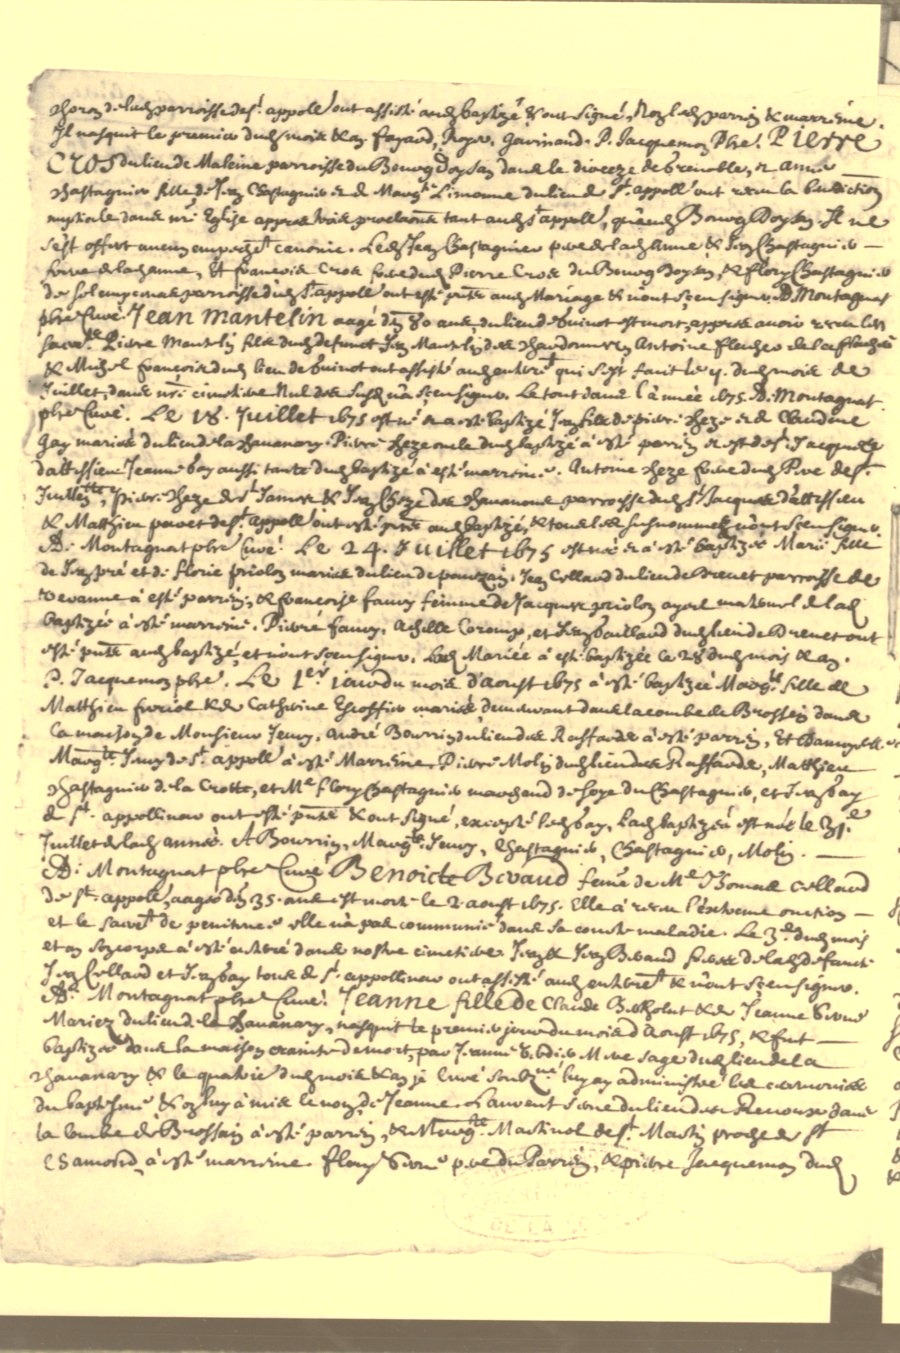 de lad parroisse de st appoll ont assisté aud baptizé & ont signé, led parrin & marrēine.
Il nasquit le premier dud mois & an fayard, Roye, Gavinand. P. Jacquemon Pbre. Pierre
Cros du lieu de Maleine parroisse du Bourg Doysan dans le dioceze de Grenoble, & anne
Chastagnier fille de Jean Chastagnier & de Marg Limonne du lieu de st appoll ont receu la benediction
nuptiale dans nre Eglise appres trois proclaõns tant aud st appoll, qu'aud Bourg Doysan. Il ne
s'est offert aucun empeschet canonic. Led Jean Chastagnier pere de lad Anne & Jean Chastagnier
frere de lad anne, Et francois Cros frere dud Pierre Cros du Bourg doysan, & flory Chastagnier
de parroisse dud st appoll ont esté pñts aud Mariage & n'ont sceu signer. D. Montagnat
pbre Curé. Jean Mantelin aagé d'en 80 ans, du lieu de est mort, appres avoir receu les
sacrts. Pierre Mantelin fils dud defunct Jean Mantelin des Antoine flecher de la flechére
& Michel francois dud lieu de ont assisté aud enterrt qui s'est fait le dud mois de
Juillet, dans nre cimetiere. Nul des susd n'a sceu signer. Le tout dans l'année 1675. D. Montagnat
pbre Curé. Le 18. Juillet 1675 est né & a esté baptizé Jean fils de pierre Cheze & de Claudine
Gay mariés du lieu de la Chavanary. Pierre Cheze oncle dud baptizé a esté parrin & est de st Jacques
d'attissieu Jeanne Gay aussi tante dud baptizé a esté marreine. Antoine Cheze frere dud P.re de st
Juillien, Pierre Cheze de & Jean Cheze des parroisse dud st Jacques d'attissieu
& Matthieu pavet de st appoll ont esté pñts aud baptizé, & tous les susnommez n'ont sceu signer.
D. Montagnat pbre Curé. Le 24. Juillet 1675 est née & a esté baptizée Marie fille
de Jean pré et de florie priolon mariés du lieu de pourzain. Jean Collaud du lieu de Brenet parroisse de
Vevanne a esté parrin, & francoise faury femme de Jacques priolon ayeul maternel de lad
baptizée a esté marreine. Pierre faury, Achille Coromp, et Jean baillaud dud lieu de Brenet ont
esté pñts aud baptizé, et n'ont sceu signer. Lad Mariée a esté baptizée le 28 dud mois & an.
P. Jacquemon pbre. Le 1er jour du mois d'Aoust 1675 a esté baptizée Margte fille de
Matthieu & de Catherine mariés demeurant dans la combe de Brossein dans
la maison de Monsieur Jeury. André Bourrin du lieu des Roffardes a esté parrin, Et Damoyselle
Margte Jeury de st appoll a esté Marrēine. Pierre Molin dud lieu des Raffardes, Matthieu
Chastagnier de la Crotte, et Me flory Chastagnier marchand de soye du Chastagnier, et Jean bay
de st. appollinar ont esté pñts & ont signé, excepté led bay, lad baptizée est née le 31e
Juillet de lad année. A Bourrin, Margte Jeury, Chastagnier, Chastagnier, Molin.
D. Montagnat pbre Curé Benoicte Bivaud feme de Me Thomas Collaud
de st. appoll, aagée d'en 35. ans est morte le 2. aoust 1675. Elle a receu l'extreme onction
et le sacret de penitence elle n'a pas communié dans sa courte maladie. Le 3e dud mois
et an son corps a esté enterré dans nostre cimetiere. Jean & Jean Bivaud freres de lad defuncte
Jean Collaud et Jean bay tous de st. appollinar ont assisté aud enterret & n'ont sceu signer.
D. Montagnat pbre Curé. Jeanne fille de Claude Bertholat & de Jeanne
Mariez du lieu de la Chavanary, nasquit le premier jour du mois d'Aoust 1675, & fut
baptizée dans la maison crainte de mort, par Jeanne Mere sage dud lieu de la
Chavanary & le quatrie dud mois & an je Curé soubzne luy ay administré les ceremonies
du baptesme & on luy a mis le nom de Jeanne. Laurent du lieu des dans
la Combe de Brossain a esté parrin, & Margte Martinol de st. Martin proche de st
Chamond a esté marreine. flory pere du Parrin, & pierre Jacquemon dud